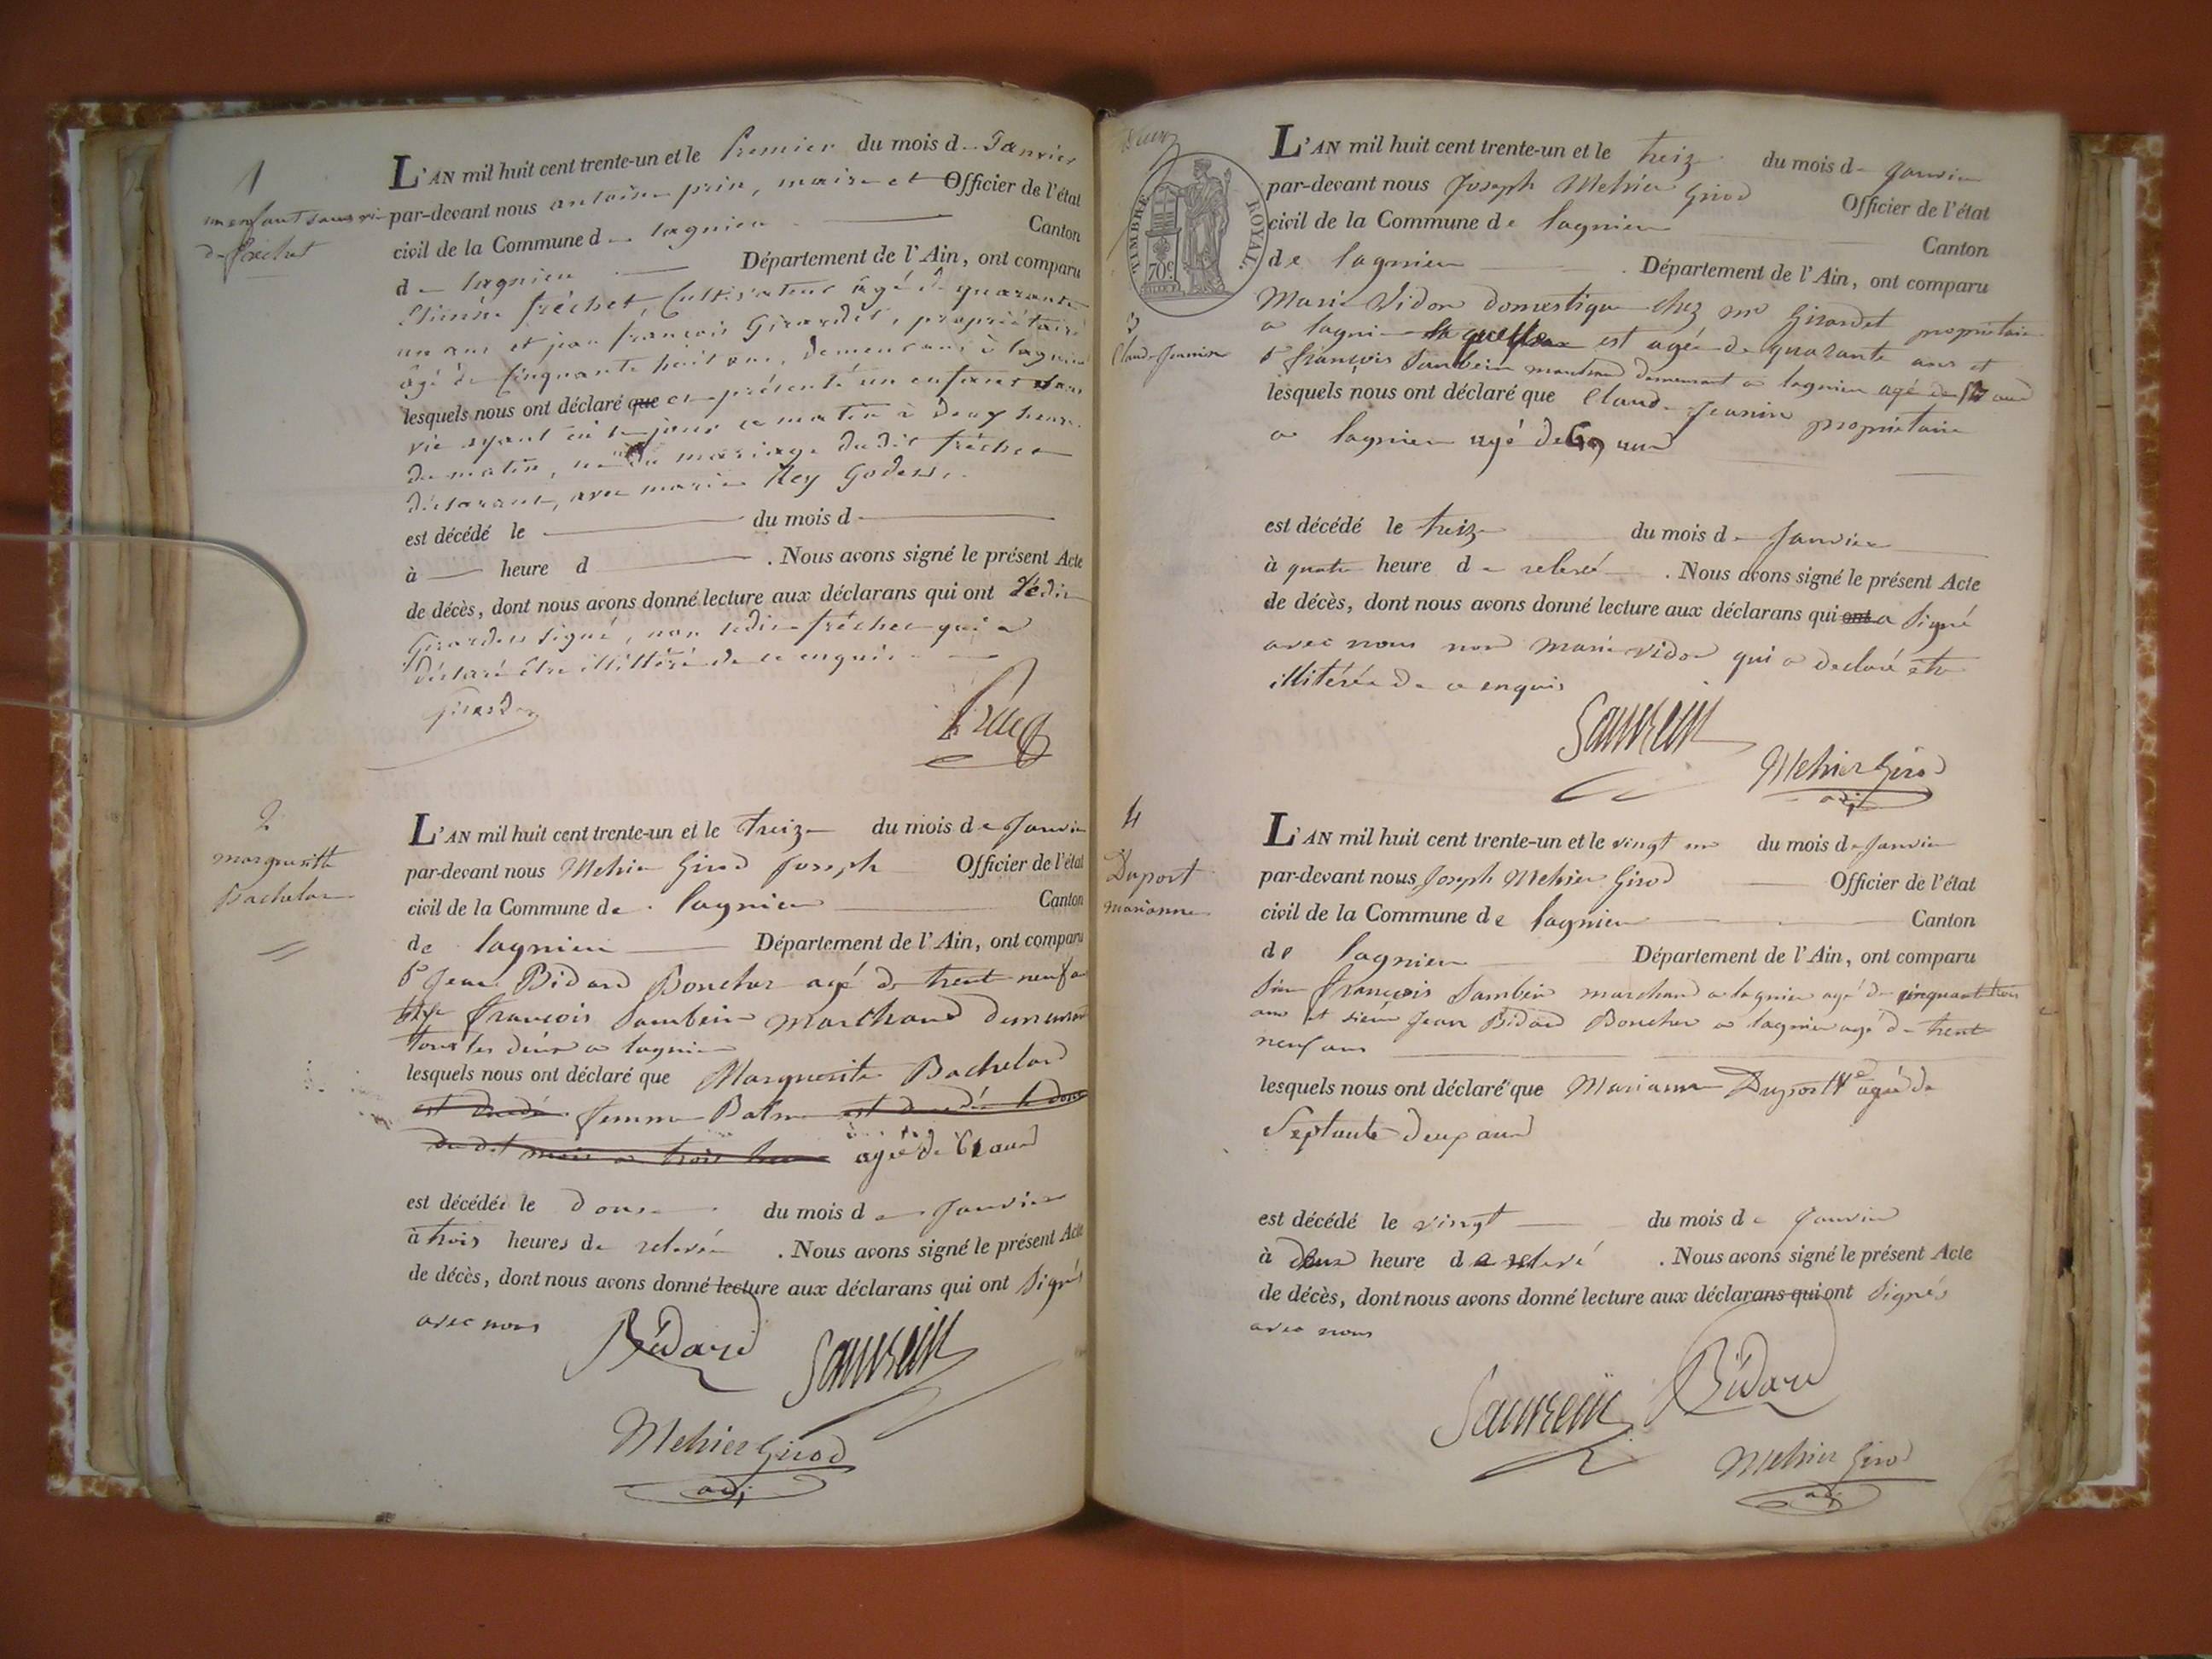 1
un enfant sans vie
de fréchet
L'AN mil huit cent trente-un et le Premier du mois de Janvier
par-devant nous antoine prin, maire et Officier de l'état
civil de la Commune de lagnieu Canton
de lagnieu Département de l'Ain, ont comparu
fréchet, Cultivateur âgé de quarante
un ans et jean françois Girardet, propriétaire
âgé de Cinquante huit ans, demeurans à lagnieu
lesquels nous ont déclaré que et présenté un enfant sans
vie ayant eu ce matin à deux heures
du matin, né du mariage dudit fréchet
déclarant, avec marie Rey Godet.
est décédé le du mois d
à heure d . Nous avons signé le présent Acte
de décès, dont nous avons donné lecture aux déclarans qui ont ledit
Girardet signé, non ledit fréchet qui a
déclaré être illitéré de ce enquis
2
marguerith
Bachelar
L'AN mil huit cent trente-un et le treize du mois de Janvier
par-devant nous Mehier Girod Joseph Officier de l'état
civil de la Commune de lagnieu Canton
de lagnieu Département de l'Ain, ont comparu
Sr Jean Bidard Boucher agé de trent neuf a
françois Sambein Marchand demeurant
tous les deux a lagnieu
lesquels nous ont déclaré que Marguerite Bachelard
est décédé femme est décédé le douse
du dit mois a trois heure agée de 61 ans
est décédée le douse du mois de Janvier
à trois heures de relevée . Nous avons signé le présent Acte
de décès, dont nous avons donné lecture aux déclarans qui ont Signés
avec nous
Bidard
Mehier Girod
adj
TIMBRE ROYAL.
70c
3
Claude Jeannin
L'AN mil huit cent trente-un et le treize du mois de Janvier
par-devant nous Joseph Mehier Girod Officier de l'état
civil de la Commune de lagnieu Canton
de lagnieu Département de l'Ain, ont comparu
Marie Vidon domestique chez mr Girardet propriétaire
a lagnieu laquelle est agée de quarante ans et
Sr françois Sambein marchand demeurant a lagnieu agé de ans
lesquels nous ont déclaré que Claude Jeanin propriétaire
a lagnieu agé de ans
est décédé le treize du mois de Janvier
à quatre heure de relevé . Nous avons signé le présent Acte
de décès, dont nous avons donné lecture aux déclarans qui ont a Signé
avec nous non Marie Vidon qui a declaré etre
illitérée de ce enquis
Mehier Girod
adj
4
Duport
marianne
L'AN mil huit cent trente-un et le vingt un du mois de Janvier
par-devant nous Joseph Mehier Girod Officier de l'état
civil de la Commune de lagnieu Canton
de lagnieu Département de l'Ain, ont comparu
Sieur françois Sambein marchand a lagnieu agé de cinquant trois
ans et sieur Jean Bidard Boucher a lagnieu agé de trent
neuf ans
lesquels nous ont déclaré que Marianne Duport Ve agée de
Septante deux ans
est décédé le vingt du mois de Janvier
à deux heure de relevé . Nous avons signé le présent Acte
de décès, dont nous avons donné lecture aux déclarans qui ont Signés
avec nous
Bidard
Mehier Girod
adj